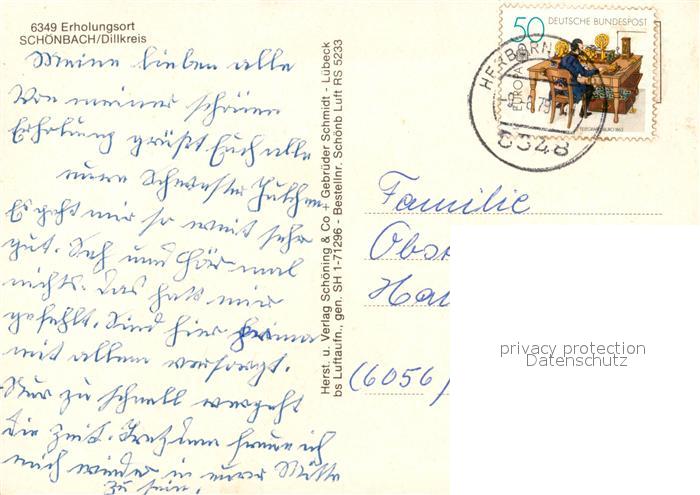 6349 Erholungsort
SCHÖNBACH/Dillkreis
Meine lieben alle
Von meiner schönen
Erholung grüßt Euch alle
eure Schwester Julchen
Es geht mir so weit sehr
gut. Seh und hör mal
nichts. Das hatt mir
gefehlt. Sind hier prima
mit allem versorgt.
Nur zu schnell vergeht
die Zeit. Trotzdem freue ich
mich wieder in eurer Mitte
zu sein.
Herst. u. Verlag Schöning & Co + Gebrüder Schmidt - Lübeck
bs Luftaufn., gen. SH 1-71296 - Bestellnr. Schönb Luft RS 5233
50 DEUTSCHE BUNDESPOST
EUROPA
HERBORN
6348
Familie
(6056
privacy protection
Datenschutz